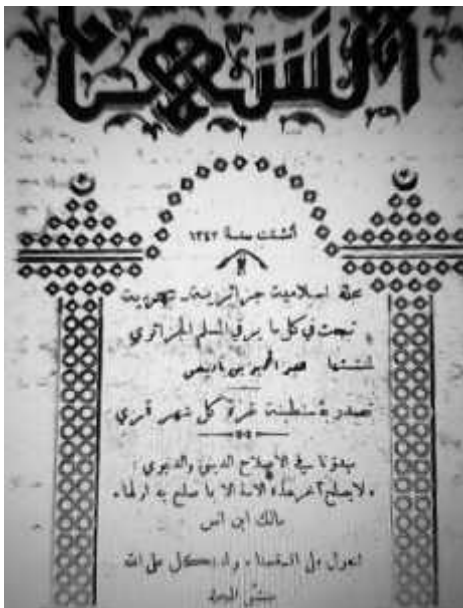 الشهاب
أنشئت سنة ١٣٤٣
مجلة اسلامية جزائرية شهرية
تبحث في كل ما يرقي المسلم الجزائري
لمنشئها عبد الحميد بن باديس
تصدر بقسنطينة غرة كل شهر قمري
مبدؤنا في الاصلاح الديني والدنيوي :
« لا يصلح آخر هذه الامة الا بما صلح به اولها »
مالك ابن انس
على الله